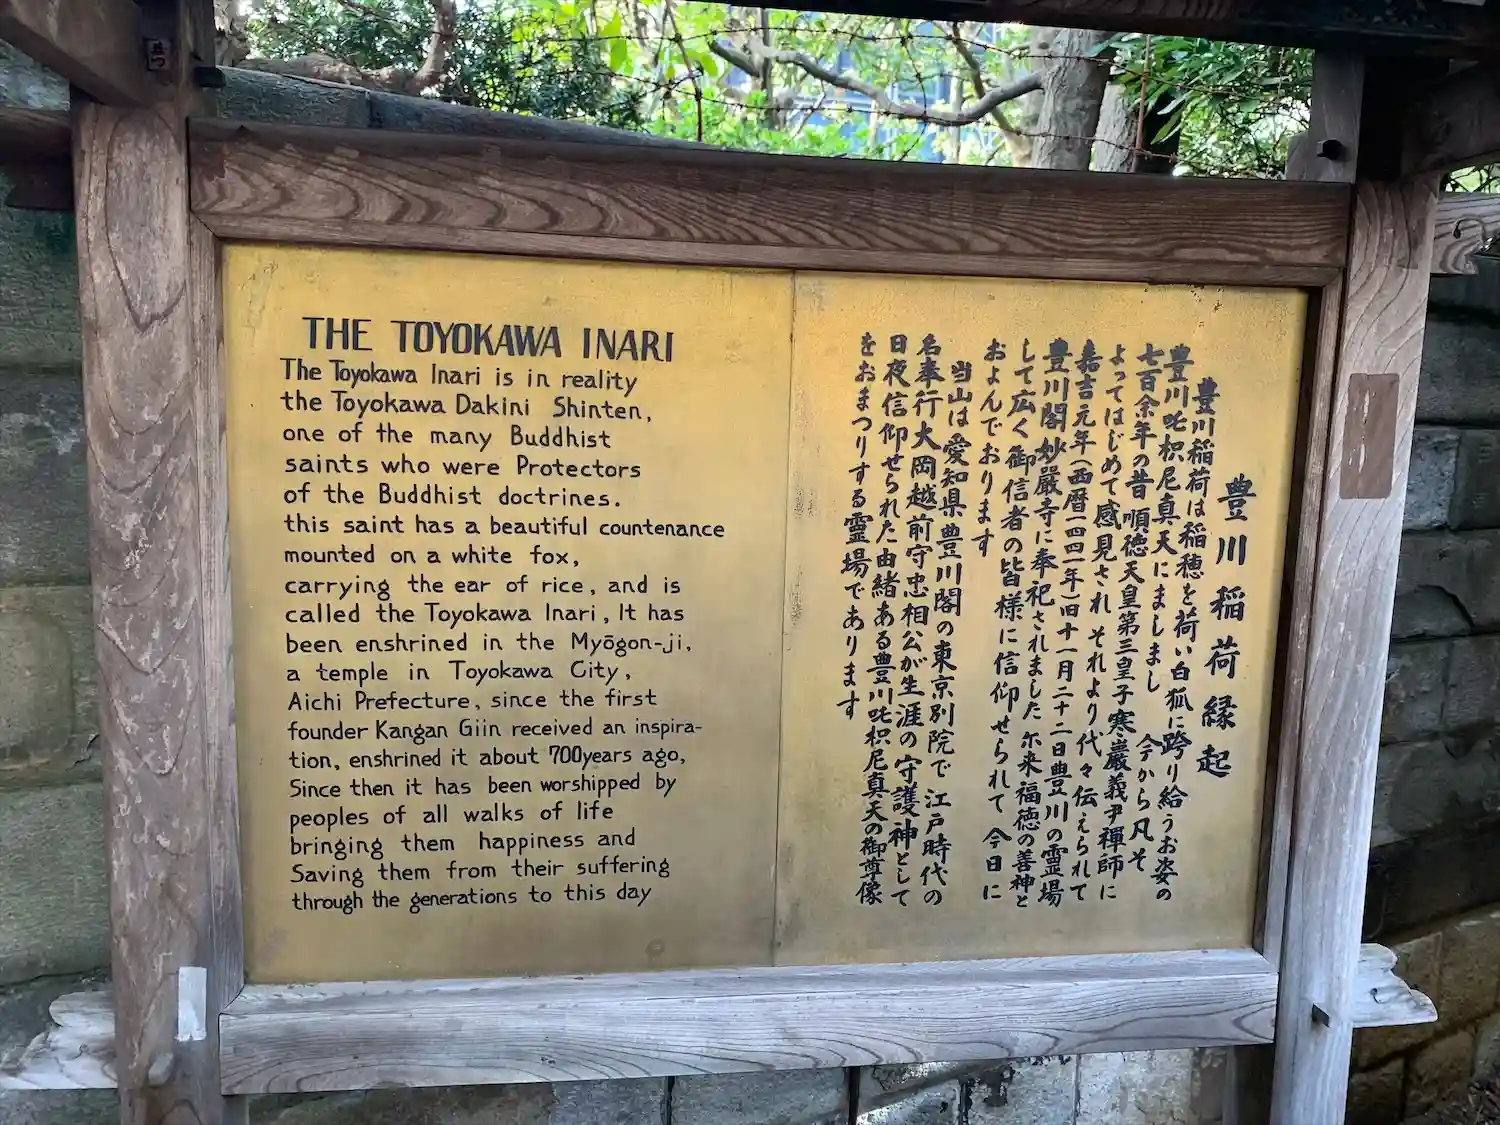 THE TOYOKAWA INARI
The Toyokawa Inari is in reality
the Toyokawa Dakini Shinten,
one of the many Buddhist
saints who were Protectors
of the Buddhist doctrines.
this saint has a beautiful countenance
mounted on a white fox,
carrying the ear of rice, and is
called the Toyokawa Inari, It has
been enshrined in the Myōgon-ji,
a temple in Toyokawa City,
Aichi Prefecture, since the first
founder Kangan Giin received an inspira-
tion, enshrined it about 700years ago,
Since then it has been worshipped by
peoples of all walks of life
bringing them happiness and
Saving them from their suffering
through the generations to this day
豊川稲荷縁起
豊川稲荷は稲穂を荷い白狐に跨り給うお姿の
豊川吒枳尼真天にましまし 今から凡そ
七百余年の昔順徳天皇第三皇子寒巖義尹禪師に
よってはじめて感見され それより代々伝えられて
嘉吉元年(西暦一四四一年)旧十一月二十二日豊川の霊場
豊川閣妙嚴寺に奉祀されました 尓来福徳の善神と
して広く御信者の皆様に信仰せられて 今日に
およんでおります
当山は愛知県豊川閣の東京別院で 江戸時代の
名奉行大岡越前守忠相公が生涯の守護神として
日夜信仰せられた由緒ある豊川吒枳尼真天の御尊像
をおまつりする霊場であります